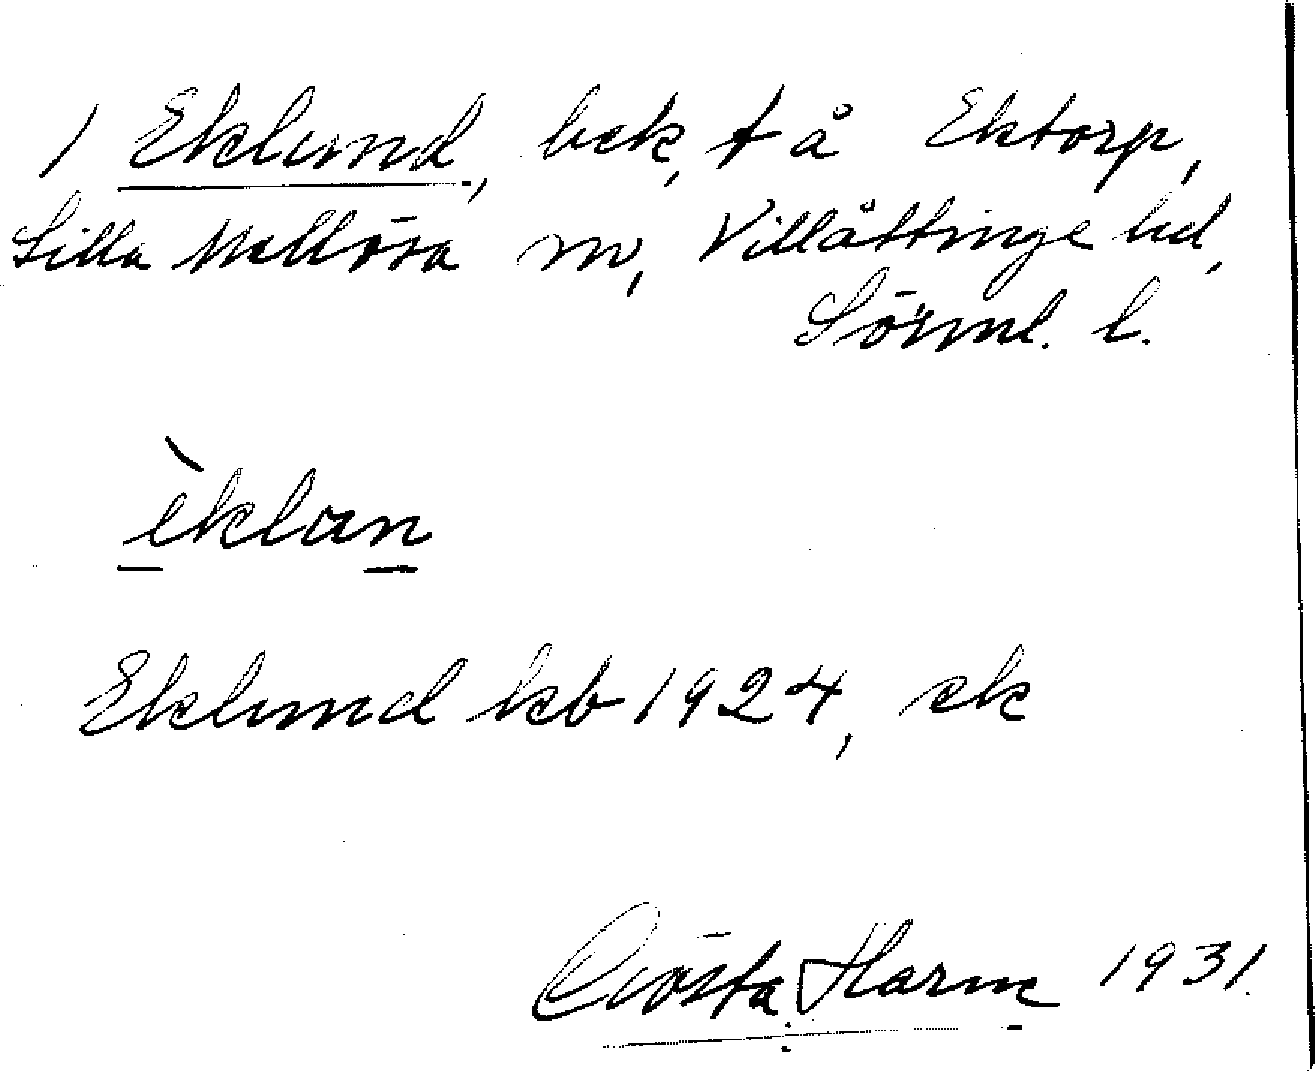 1 Eklund, bck, t å Ektorp,
Lilla Mellösa sn, Villåttinge hd,
Sörml. l.
èklan
Eklund kb 1924, ek
Gösta Harm 1931.